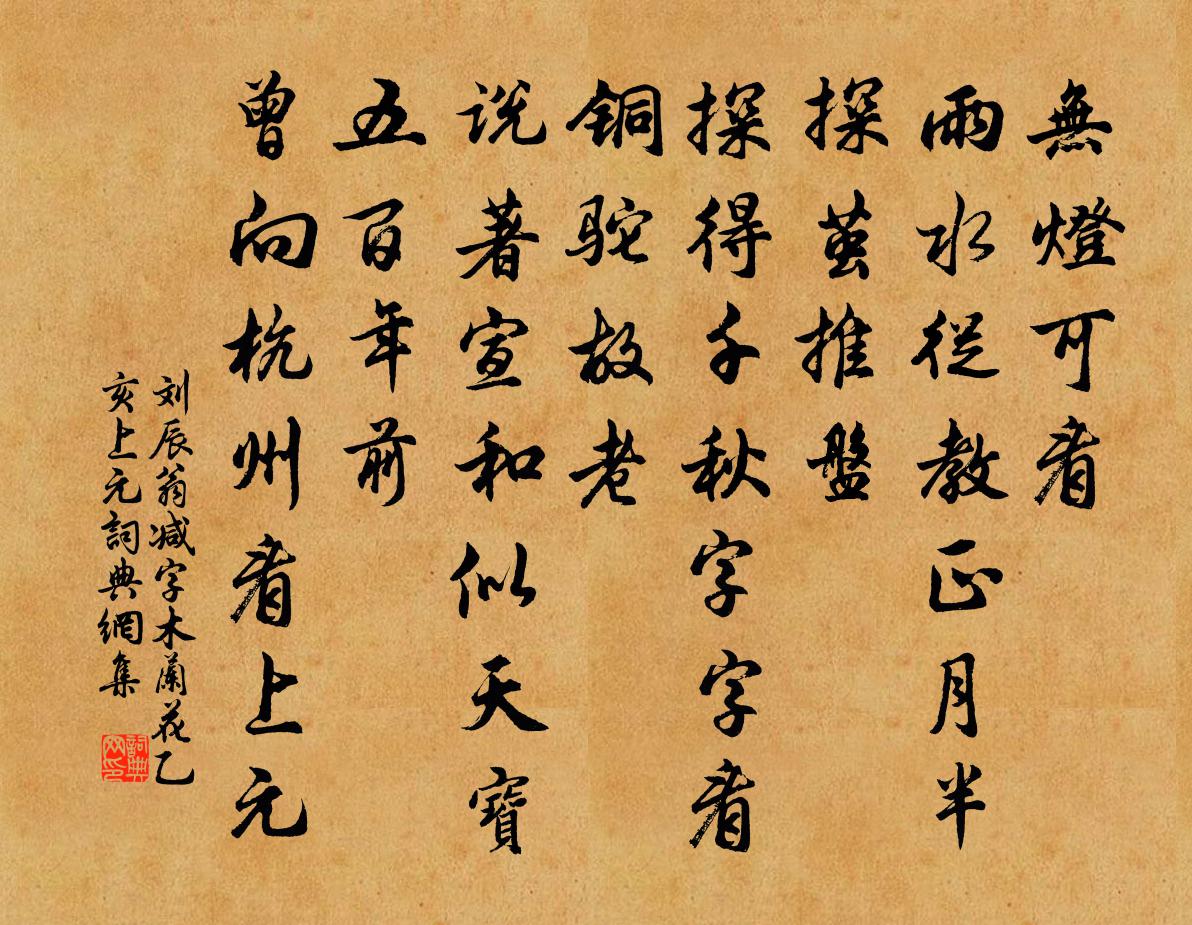 無燈可看
雨水從教正月半
探繭推盤
探得千秋字字看
銅駝故老
说著宣和似天寶
五百年前
曾向杭州看上元
刘辰翁减字木蘭花乙
亥上元詞典網集
詞典
网印